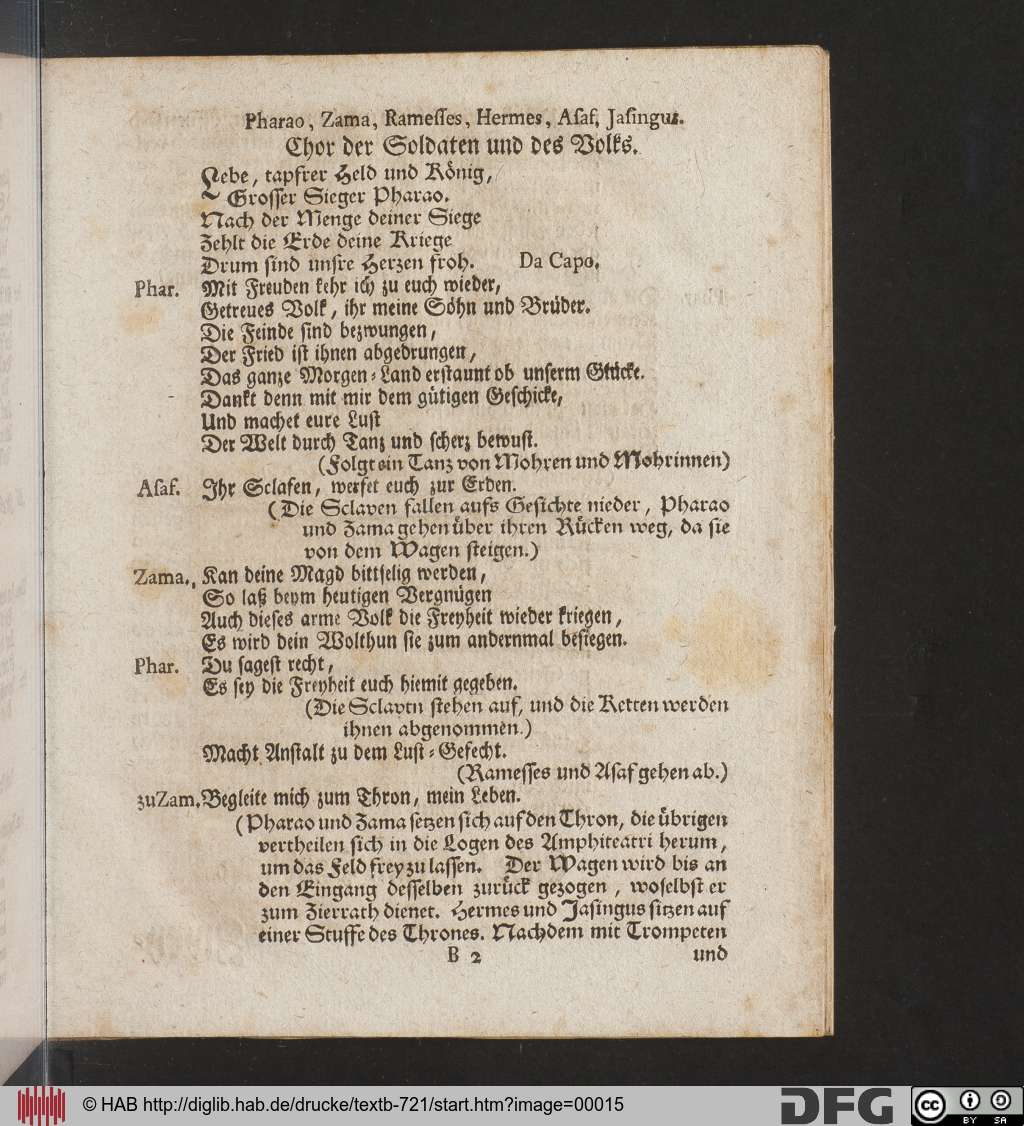 Pharao, Zama, Ramesses, Hermes, Asaf, Jasingus.
Chor der Soldaten und des Volks.
Lebe, tapfrer Held und König,
Grosser Sieger Pharao.
Nach der Menge deiner Siege
Zehlt die Erde deine Kriege
Drum sind unsre Herzen froh. Da Capo.
Phar. Mit Freuden kehr ich zu euch wieder,
Getreues Volk, ihr meine Söhn und Brüder.
Die Feinde sind bezwungen,
Der Fried ist ihnen abgedrungen,
Das ganze Morgen-Land erstaunt ob unserm Glücke.
Dankt denn mit mir dem gütigen Geschicke,
Und machet eure Lust
Der Welt durch Tanz und scherz bewust.
(Folgt ein Tanz von Mohren und Mohrinnen)
Asaf. Ihr Sclafen, werfet euch zur Erden.
(Die Sclaven fallen aufs Gesichte nieder, Pharao
und Zama gehen über ihren Rücken weg, da sie
von dem Wagen steigen.)
Zama. Kan deine Magd bittselig werden,
So laß beym heutigen Vergnügen
Auch dieses arme Volk die Freyheit wieder kriegen,
Es wird dein Wolthun sie zum andernmal besiegen.
Phar. Du sagest recht,
Es sey die Freyheit euch hiemit gegeben.
(Die Sclaven stehen auf, und die Ketten werden
ihnen abgenommen.)
Macht Anstalt zu dem Lust-Gefecht.
(Ramesses und Asaf gehen ab.)
zu Zam. Begleite mich zum Thron, mein Leben.
(Pharao und Zama setzen sich auf den Thron, die übrigen
vertheilen sich in die Logen des Amphiteatri herum,
um das Feld frey zu lassen. Der Wagen wird bis an
den Eingang desselben zurück gezogen, woselbst er
zum Zierrath dienet. Hermes und Jasingus sitzen auf
einer Stuffe des Thrones. Nachdem mit Trompeten
B 2 und
© HAB http://diglib.hab.de/drucke/textb-721/start.htm?image=00015
DFG
cc BY SA